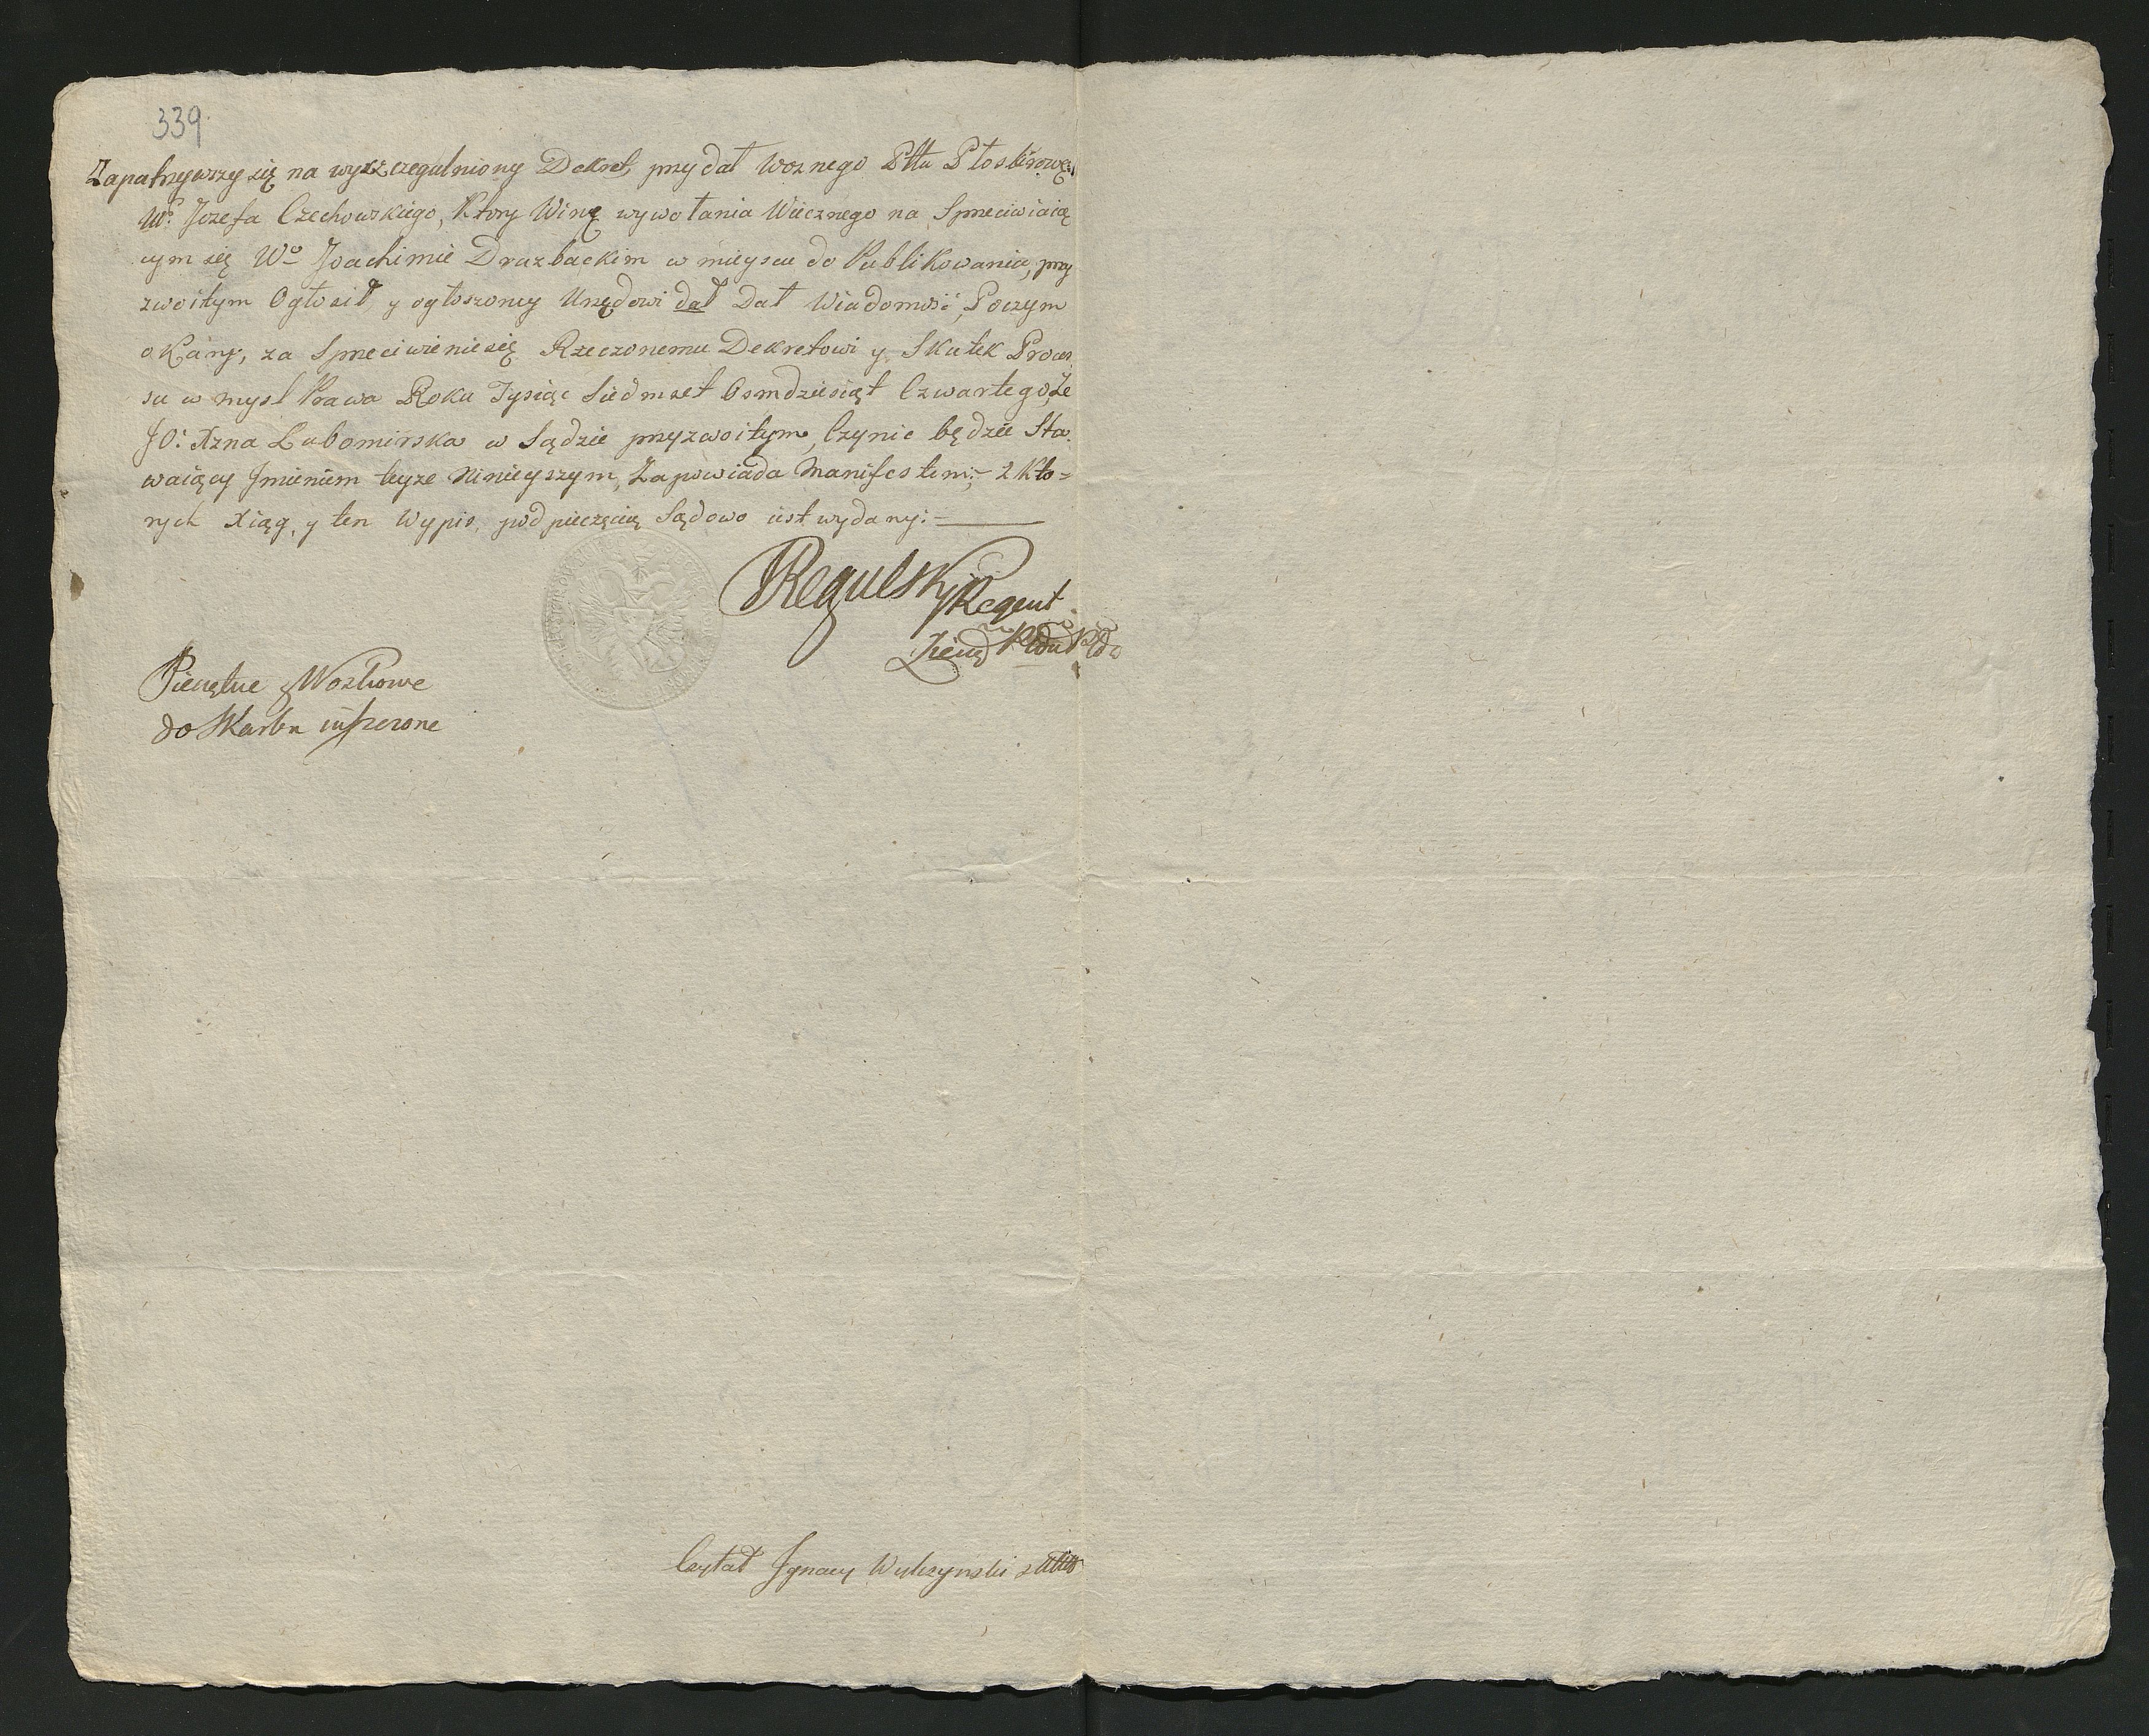 339
Zapatrzywszy się na wyszczegulniony Dekret, przydał Woznego Pttu Płoskirowg.
Wo. Jozefa Czechowskiego, Ktory Winę wywołania Wiecznego na Sprzeciwiaią
cym się Wo Joachimie Druzbackim w mieyscu do Publikowania, przy
zwoitym Ogłosił, y ogłoszoney Urzędowi dał Dał Wiadomość, Poczym
o Karę, za Sprzeciwienie się Rzeczonemu Dekretowi y Skutek Proces
su w mysl Prawa Roku Tysiąc Siedmset Osmdziesiąt Czwartego, Że
JO: Xzna Lubomirska w Sądzie przyzwoitym, Czynic będzie Sta
waiący Jmieniem teyze Ninieyszym, Zapowiada Manifestem;- z Kto=
rych Xiąg, y ten Wypis, pod pieczęcią Sądowo iest wydany:-
Regulski Regent
Ziem
Pieczętne y Woskowe
do Skarbu
Czytał Jgnacy Wulczynski